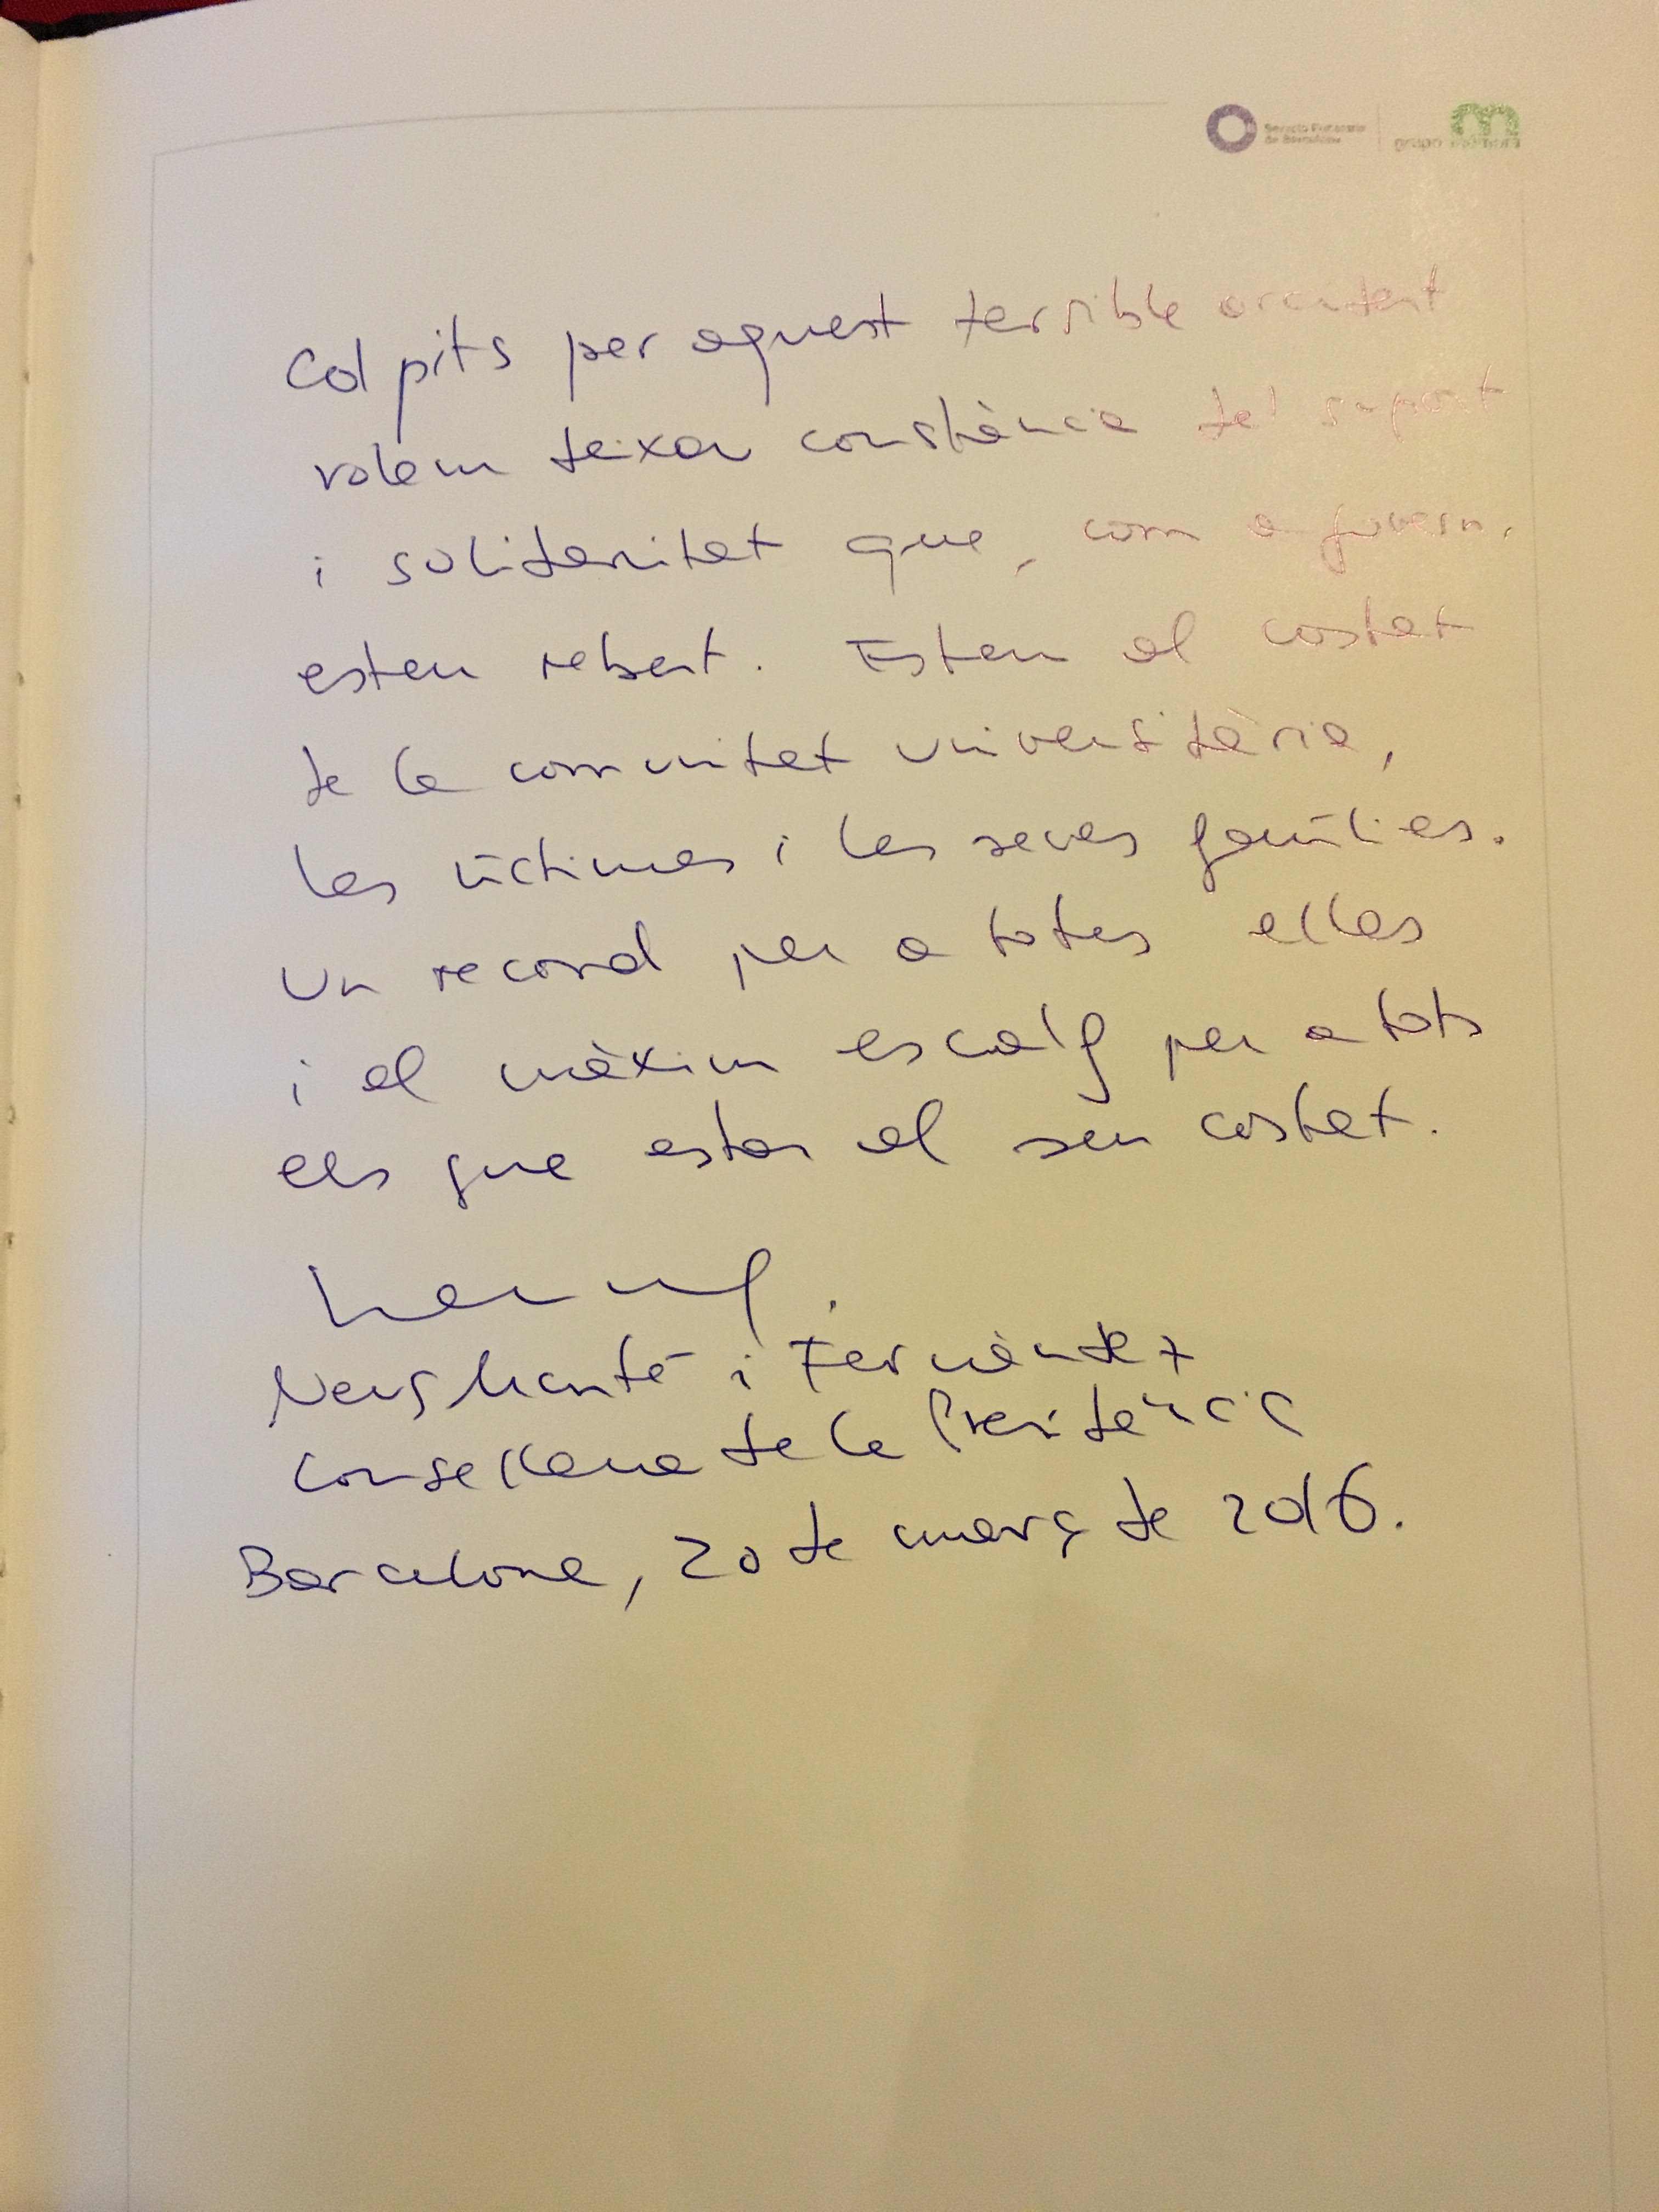 Serveis Funeraris
de Barcelona
grupo mémora
Colpits per aquest terrible accident
volem deixar constància del suport
i solidaritat que, com a govern,
estem rebent. Estem al costat
de la comunitat universitària,
les víctimes i les seves famílies.
Un record per a totes elles
i el màxim escalf per a tots
els que estan al seu costat.
Neus Munté i Fernàndez
Consellera de la Presidència
Barcelona, 20 de març de 2016.